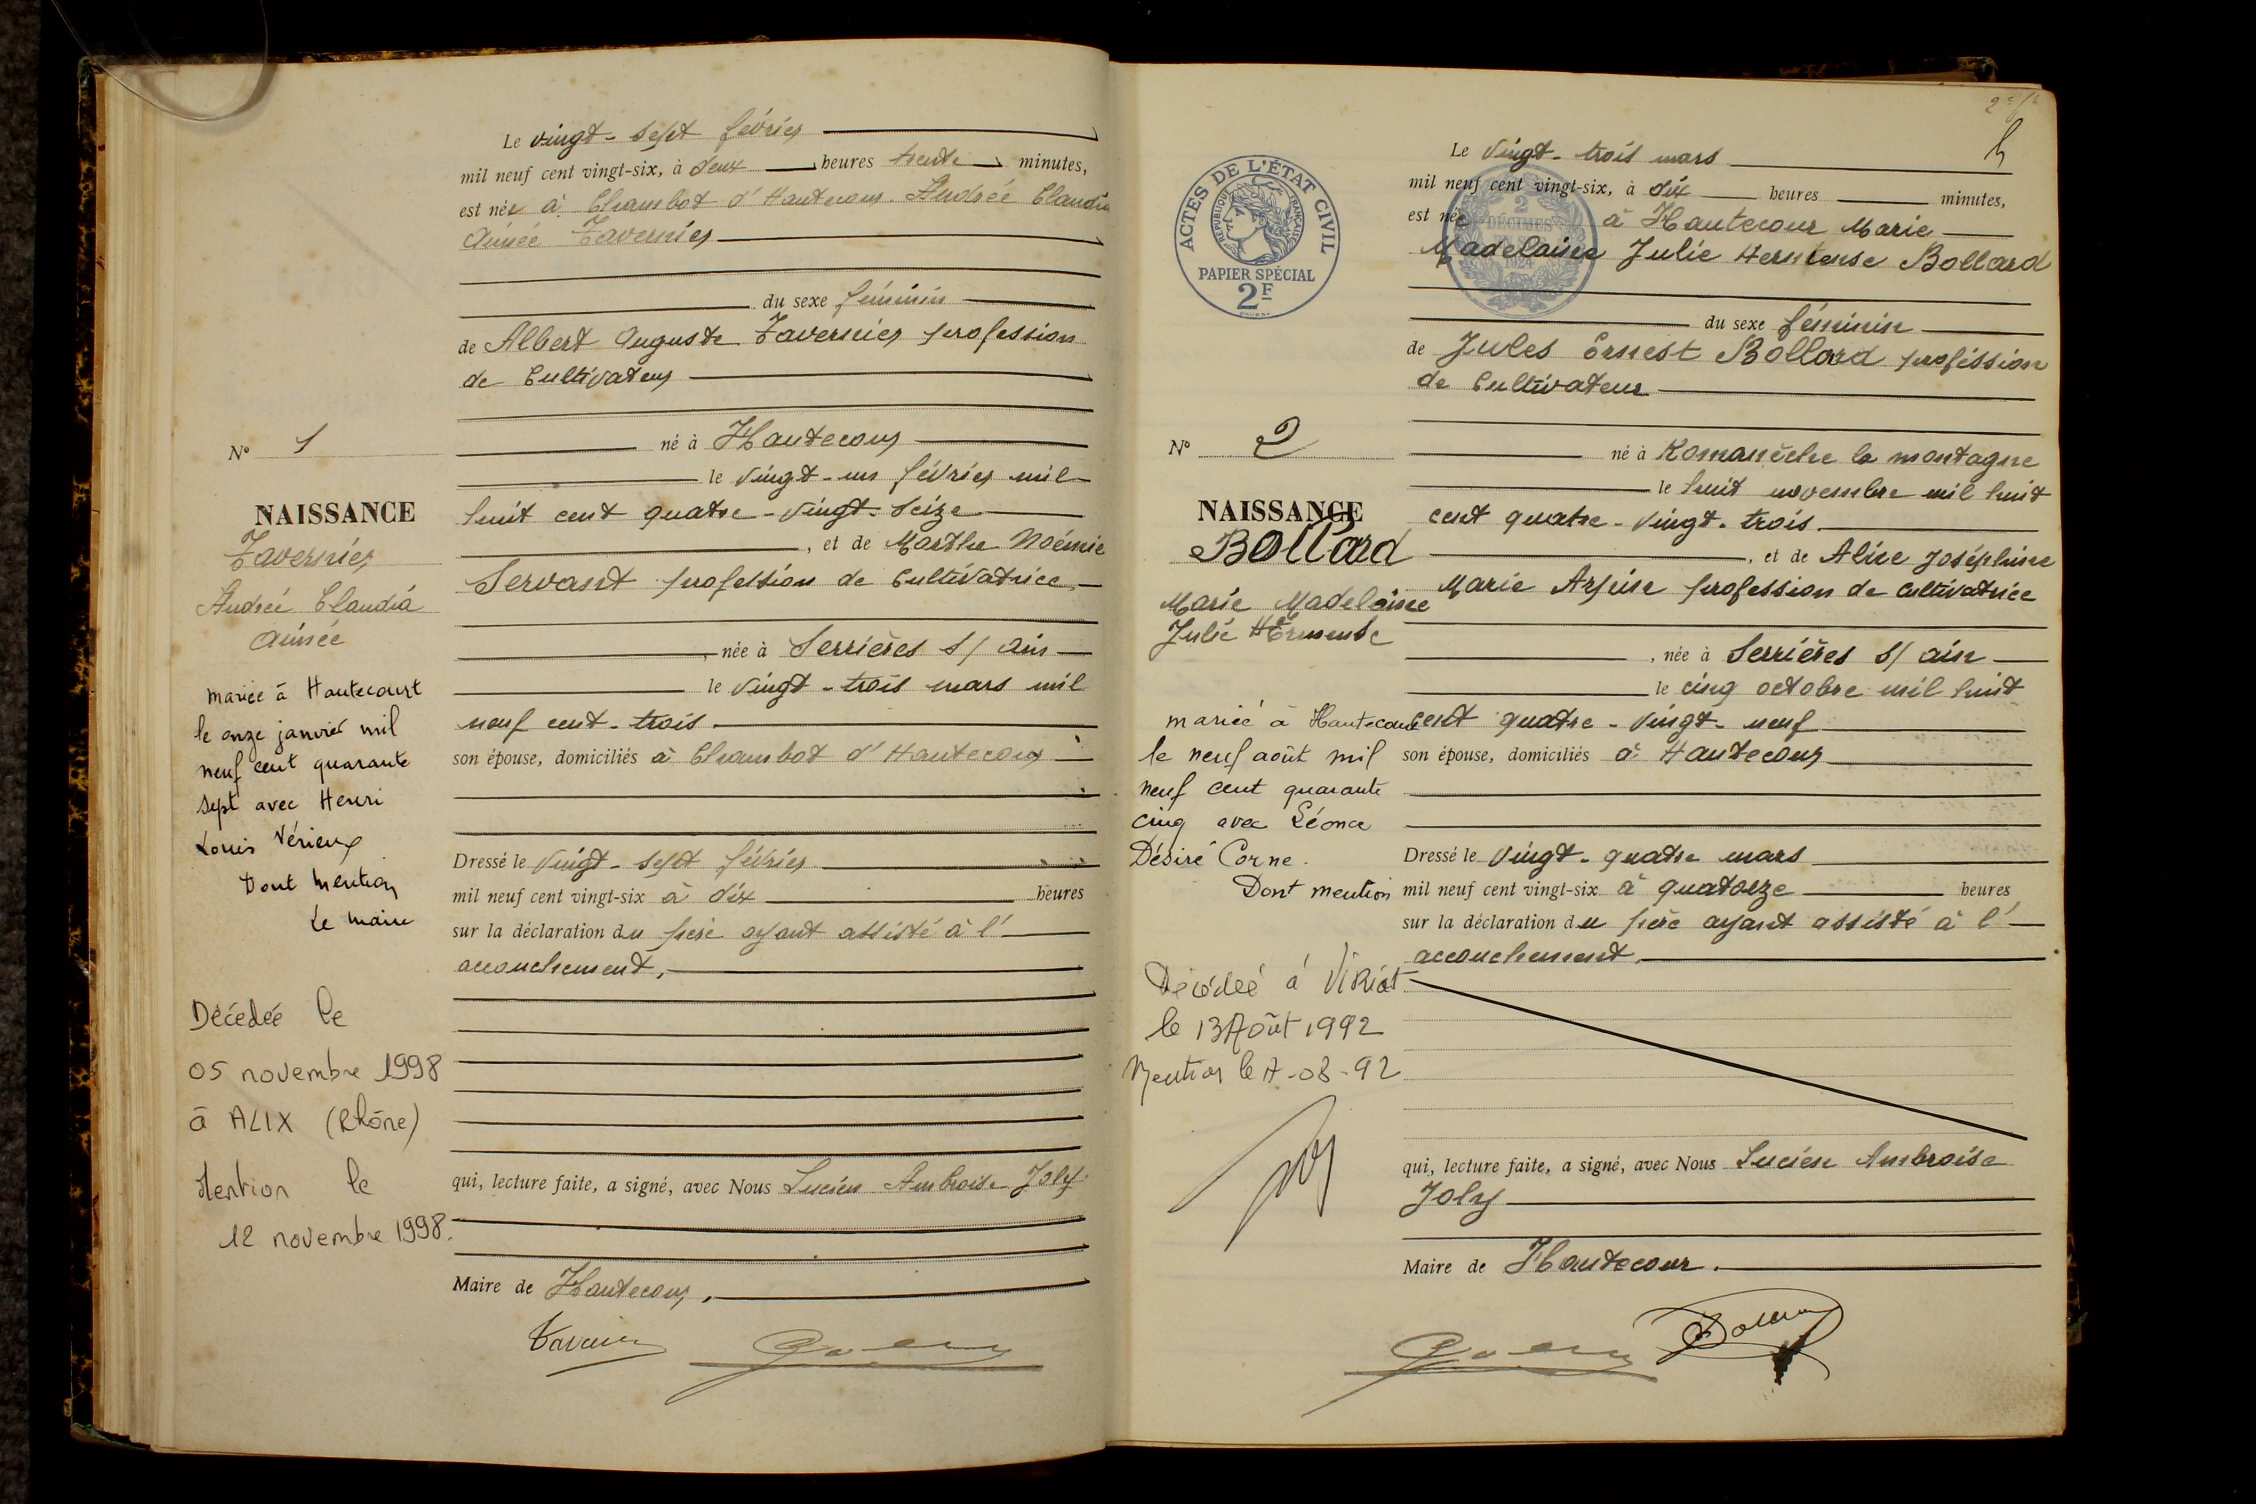 Le vingt-sept février
mil neuf cent vingt-six, à deux heures trente minutes,
est née à Chambod d'Hautecour Andrée Claudia
Aimée Tavernier
du sexe féminin
de Albert Auguste Tavernier profession
de Cultivateur
né à Hautecour
le vingt-un février mil
huit cent quatre-vingt-seize
, et de Marthe Noémie
Servant profession de Cultivatrice
, née à Serrières s/ Ain
le vingt-trois mars mil
neuf cent-trois
son épouse, domiciliés à Chambod d'Hautecour
Dressé le vingt-sept février
mil neuf cent vingt-six à dix heures
sur la déclaration du père ayant assisté à l'
accouchement,
qui, lecture faite, a signé, avec Nous Lucien Ambroise Joly
Maire de Hautecour,
No 1
NAISSANCE
Tavernier
Andrée Claudia
Aimée
mariée à Hautecourt
le onze janvier mil
neuf cent quarante
sept avec Henri
Louis Vérieux
Dont mention
Le maire
Décédée le
05 novembre 1998
à ALIX (Rhône)
Mention le
12 novembre 1998.
ACTES DE L'ÉTAT CIVIL
RÉPUBLIQUE FRANÇAISE
PAPIER SPÉCIAL
2F
2
DÉCIMES
1924
Le vingt-trois mars
mil neuf cent vingt-six, à dix heures minutes,
est née à Hautecour Marie
Madelaine Julie Hermense Bollard
du sexe féminin
de Jules Ernest Bollard profession
de Cultivateur
né à Romanèche la montagne
le huit novembre mil huit
cent quatre-vingt-trois
, et de Aline Joséphine
Marie profession de cultivatrice
, née à Serrières s/ ain
le cinq octobre mil huit
cent quatre-vingt-neuf
son épouse, domiciliés à Hautecour
Dressé le vingt-quatre mars
mil neuf cent vingt-six à quatorze heures
sur la déclaration du père ayant assisté à l'
accouchement,
qui, lecture faite, a signé, avec Nous Lucien Ambroise
Joly
Maire de Hautecour.
No 2
NAISSANCE
Bollard
Marie Madelaine
Julie Hermense
mariée à Hautecour
le neuf août mil
neuf cent quarante
cinq avec Léonce
Désiré Corne.
Dont mention
Décédée à Viriat
le 13 Août 1992
Mention le 17-08-92